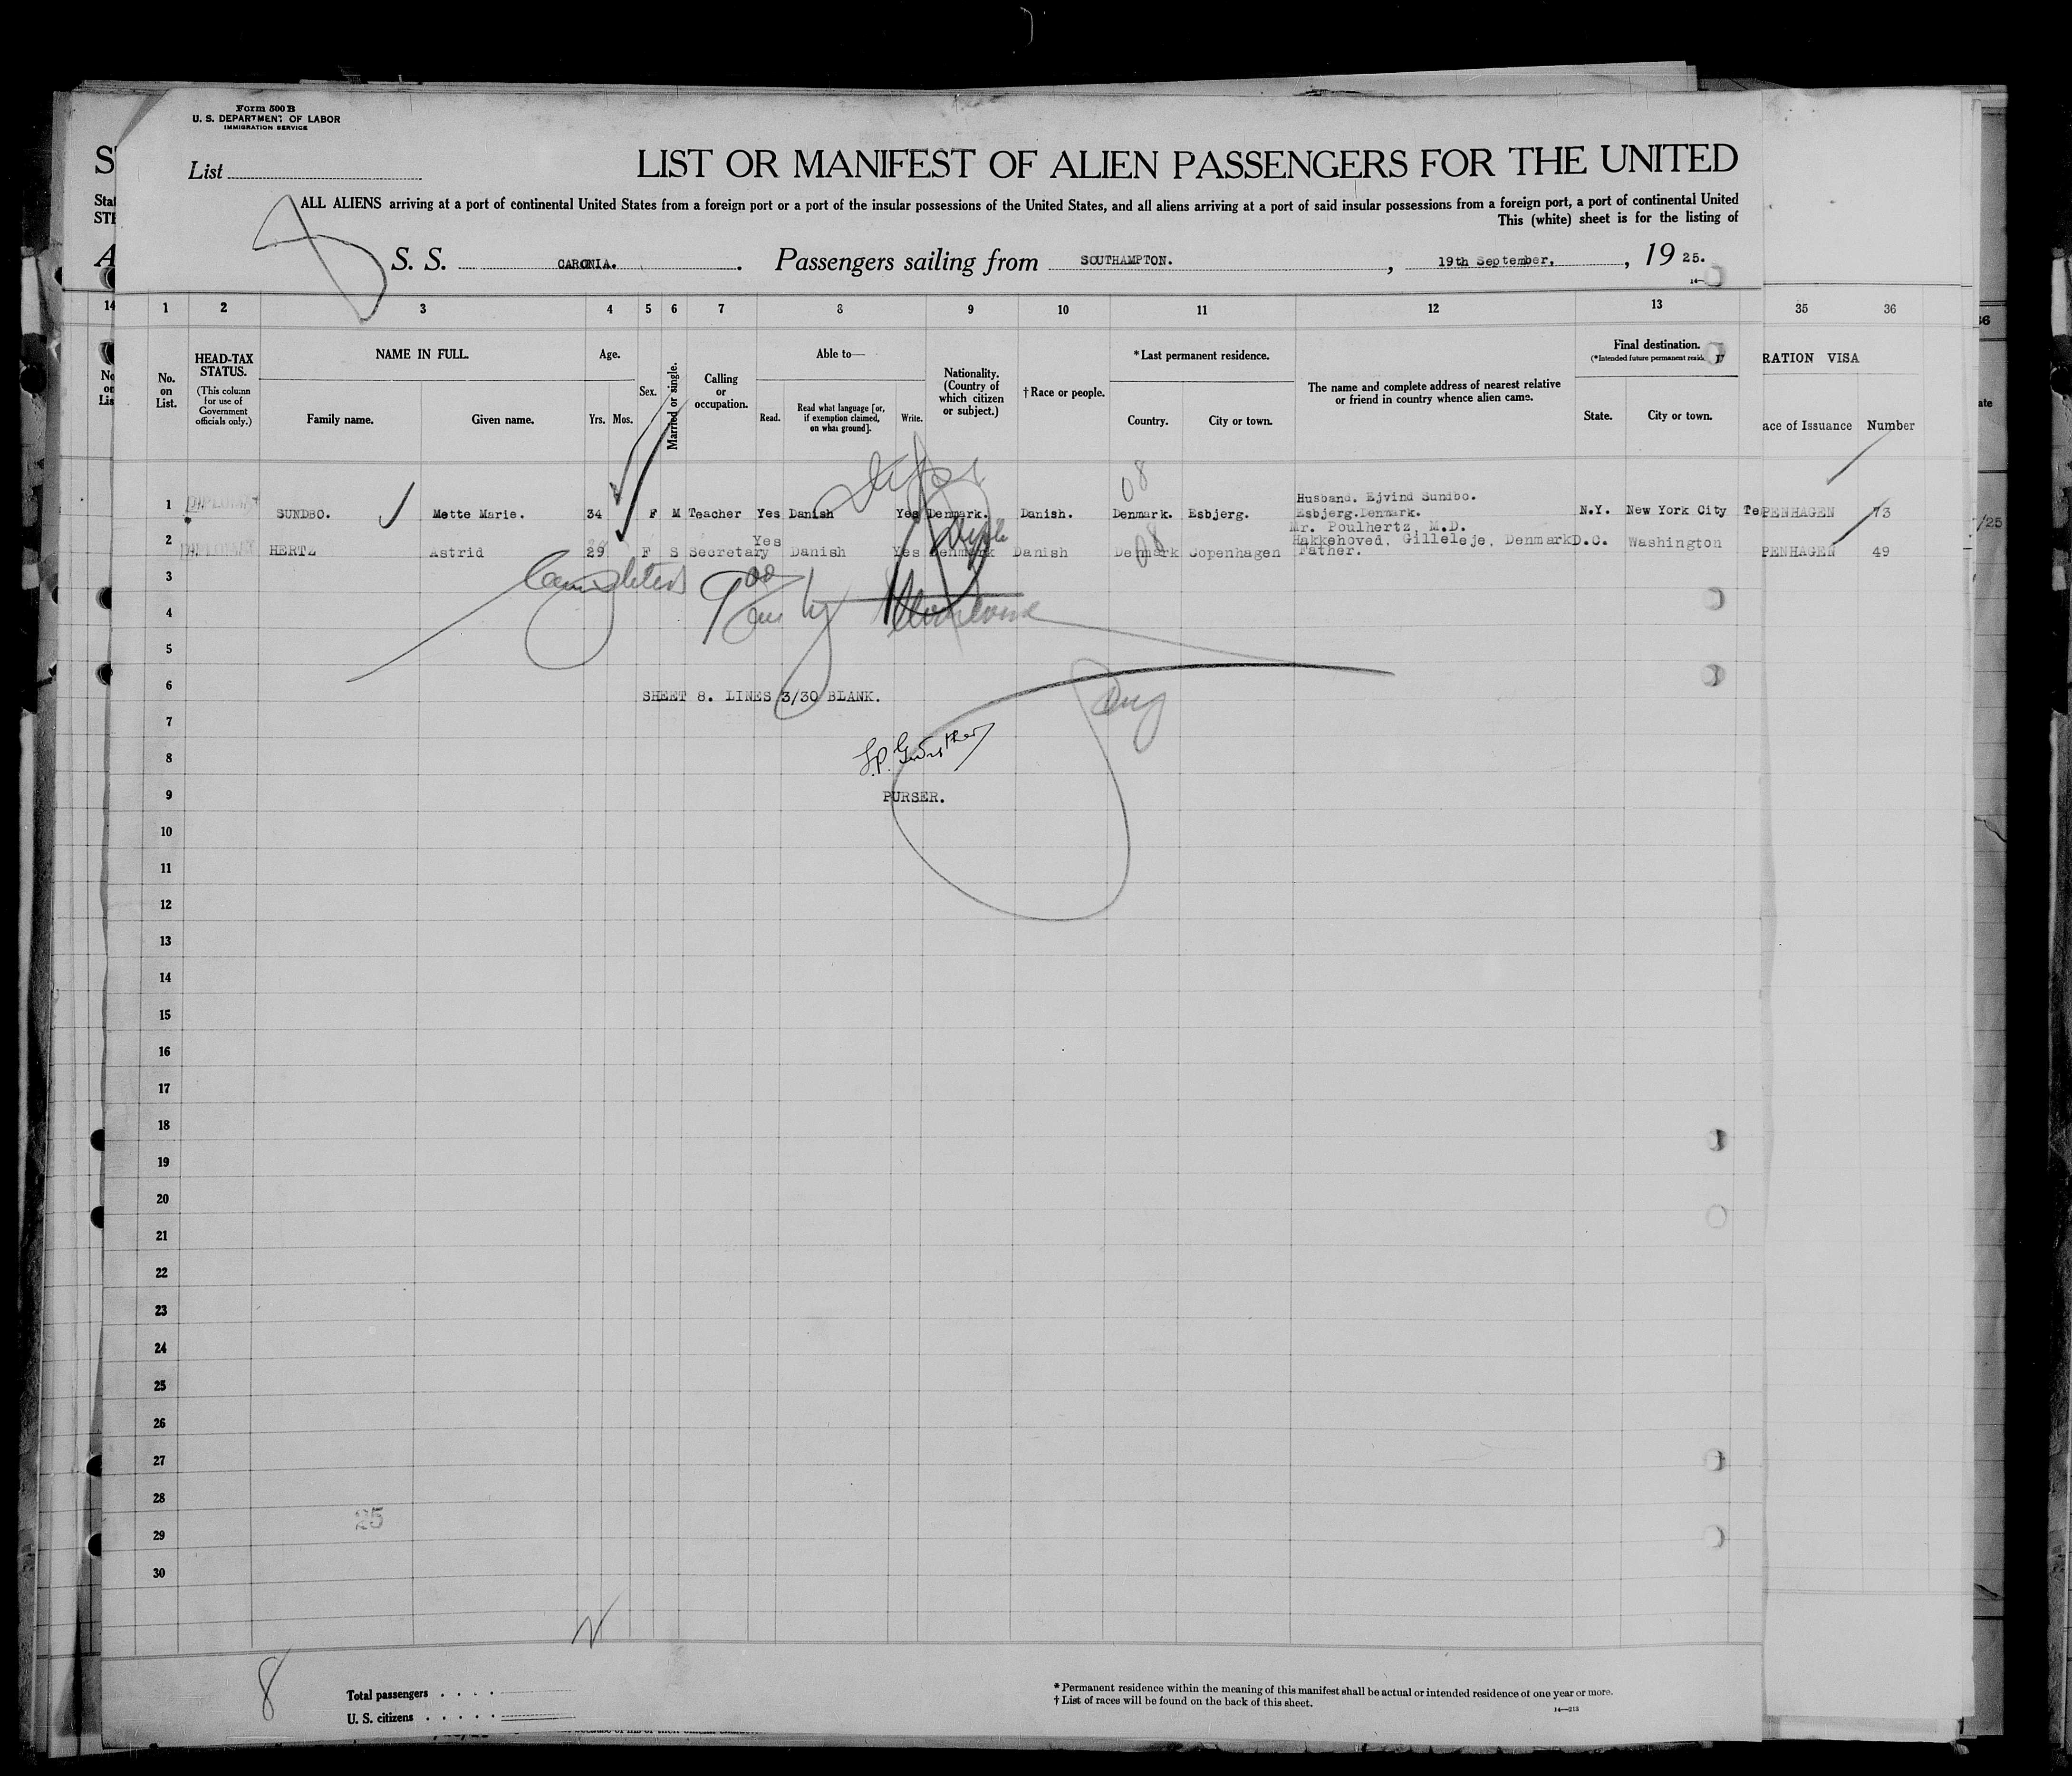 Form 500 B
U. S. DEPARTMENT OF LABOR
IMMIGRATION SERVICE
List
LIST OR MANIFEST OF ALIEN PASSENGERS FOR THE UNITED
ALL ALIENS arriving at a port of continental United States from a foreign port or a port of the insular possessions of the United States, and all aliens arriving at a port of said insular possessions from a foreign port, a port of continental United
This (white) sheet is for the listing of
S. S. CARONIA. Passengers sailing from SOUTHAMPTON. , 19th September, , 19 25.
14 1 2 3 4 5 6 7 8 9 10 11 12 13 35 36
No. on List. HEAD-TAX STATUS. (This column for use of Government officials only.) NAME IN FULL. Family name. Given name. Age. Yrs. Mos. Sex. Married or single. Calling or occupation. Able to— Read. Read what language [or, if exemption claimed, on what ground]. Write. Nationality. (Country of which citizen or subject.) †Race or people. *Last permanent residence. Country. City or town. The name and complete address of nearest relative or friend in country whence alien came. Final destination. (*Intended future permanent resid State. City or town. RATION VISA ace of Issuance Number
08
Husband. Ejvind Sundbo.
1 DIPLOMAT SUNDBO. Mette Marie. 34 F M Teacher Yes Danish Yes Denmark. Danish. Denmark. Esbjerg. Esbjerg.Denmark. N.Y. New York City Te PENHAGEN 73
Mr. Poulhertz, M.D.
2 DIPLOMAT HERTZ Astrid 29 F S Secretary Yes Danish Yes Denmark Danish Denmark Copenhagen Hakkehoved, Gilleleje, Denmark D.C. Washington PENHAGEN 49
Father.
08
3
4
5
6 SHEET 8. LINES 3/30 BLANK.
7
8
9 PURSER.
10
11
12
13
14
15
16
17
18
19
20
21
22
23
24
25
26
27
28
25
29
30
8
Total passengers . . . .
U. S. citizens . . . . .
* Permanent residence within the meaning of this manifest shall be actual or intended residence of one year or more.
† List of races will be found on the back of this sheet.
14—213